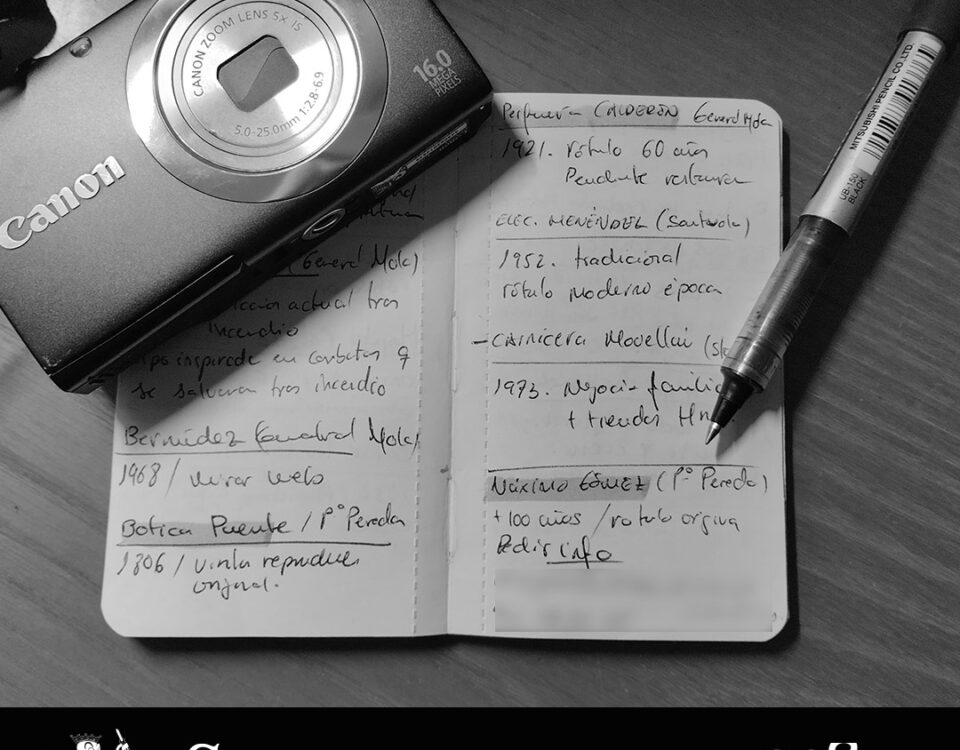 CANON ZOOM LENS 5X IS
5.0-25.0mm 1:2.8-6.9
16.0
MEGA
PIXELS
Canon
MITSUBISHI PENCIL CO. LTD.
UB-150
BLACK
(General Mola)
actual tras
incendio
inspirado en carbetas q
se salvaron tras incendio
Bermúdez General Mola)
1968 / mirar web
Botica Puente / Pº Pereda
1806 / vinilo reproduce
original.
Perfumería CALDERÓN General Mola
1921. rótulo 60 años
Pendiente restaurar
ELEC. MENÉNDEZ (Sautuola)
1952. tradicional
rótulo moderno época
- CARNICERÍA
1973. Negocio familia
+ tiendas
MÁXIMO GÓMEZ (Pº Pereda)
+ 100 años / rotulo origina
Pedir info